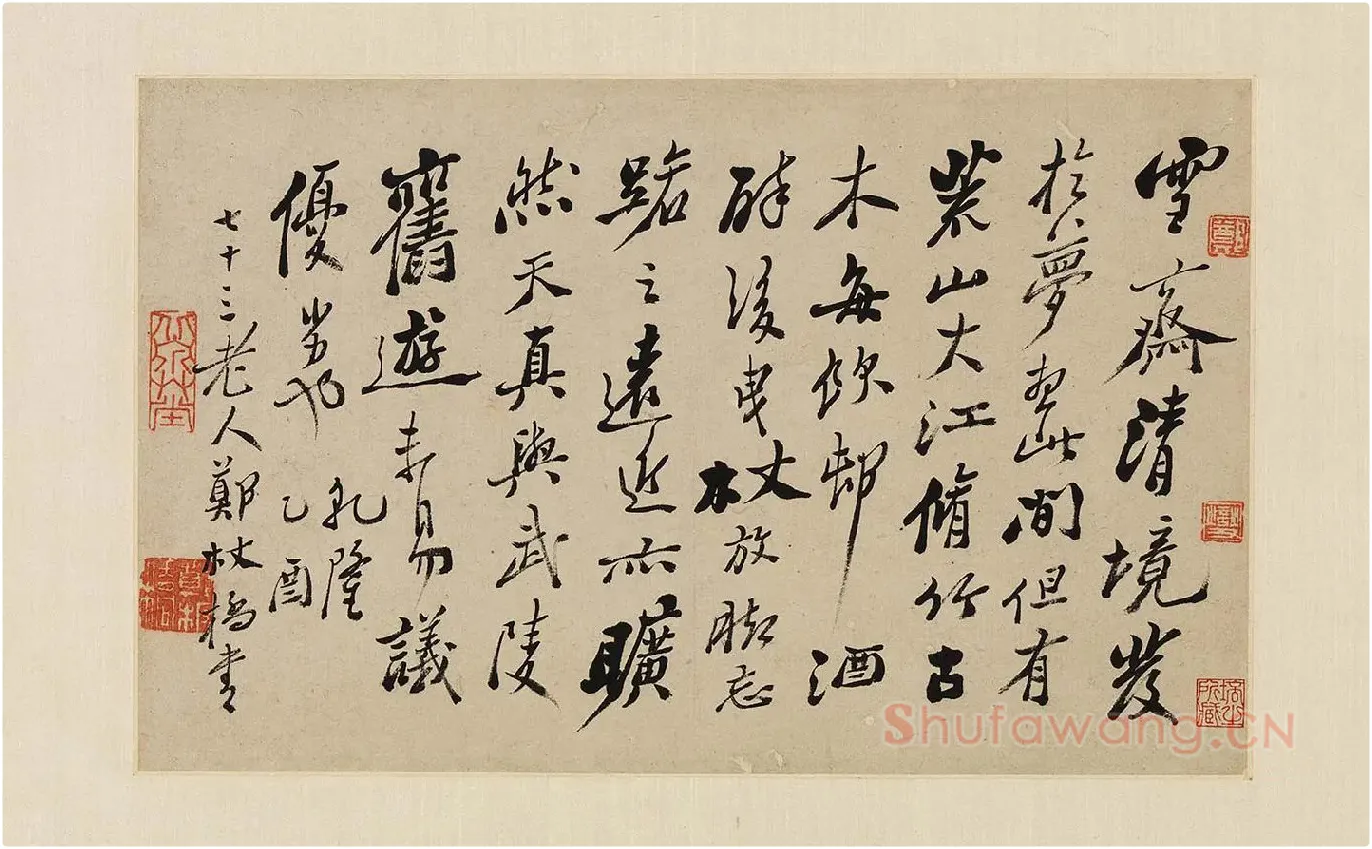 雪齋清境發
於夢想此間但有
荒山大江脩竹古
木每飲邨酒
醉後曳杖放脚忘
路之遠近亦曠
然天真與武陵
舊遊未易議
優劣也
乾隆
乙酉
七十三老人鄭板橋書
Shufawang.CN